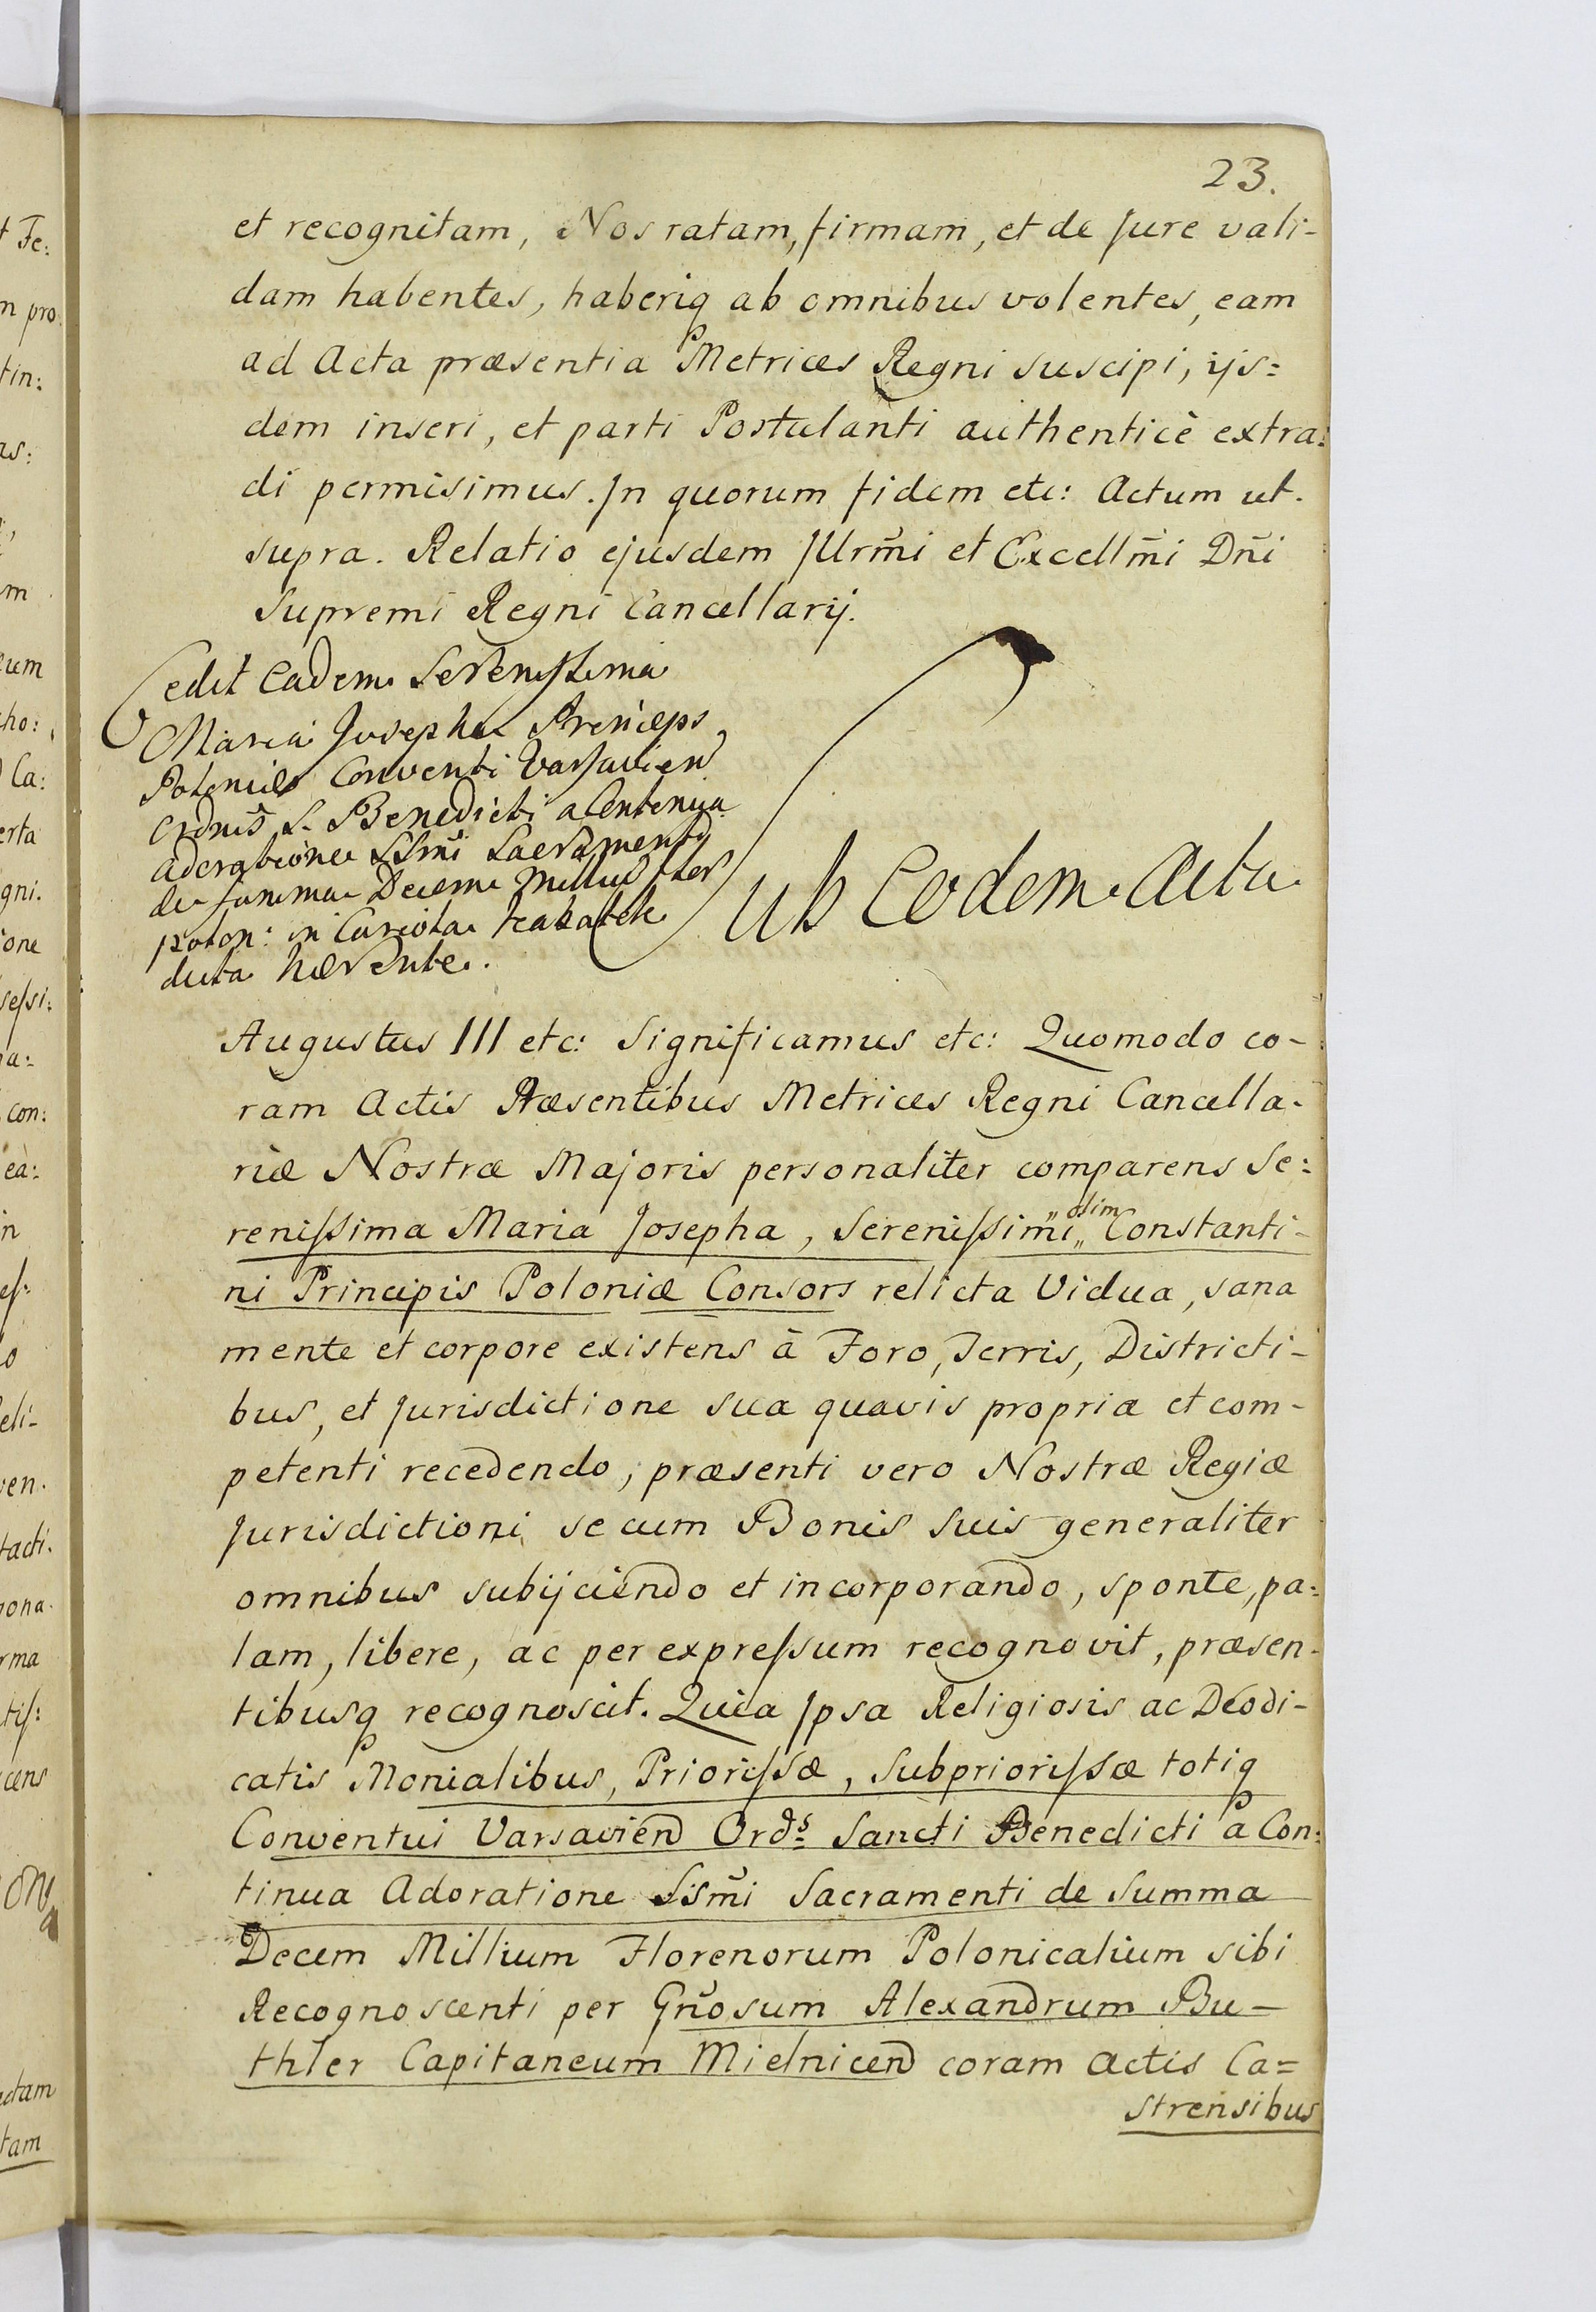 23.
et recognitam, Nos ratam, firmam, et de Jure vali-
dam habentes, haberiq ab omnibus volentes, eam
ad Acta præsentia Metrices Regni suscipi, ijs=
dem inseri, et parti Postulanti authenticè extra:
di permisimus. In quorum fidem etc: Actum ut.
supra. Relatio ejusdem Jllrm̃i et Excellm̃i Dñi
Supremi Regni Cancellarij.
Cedit Eadem Serenissima
Maria Josepha Princeps
Poloniæ Conventi Varsavien
Ordnis S. Benedicti a Continua
adoratione SSm̃i Sacramenti
de summa Decem Millius fler
polon: in
ducta hærente.
Ub Eodem Actu
Augustus III etc: Significamus etc: Quomodo co-
ram Actis Præsentibus Metrices Regni Cancella-
riæ Nostræ Majoris personaliter comparens Se:
renissima Maria Josepha, Serenissimi „olim„ Constanti-
ni Principis Poloniæ Consors relicta Vidua, sana
mente et corpore existens à Foro, Terris, Districti-
bus, et Jurisdictione sua quavis propria et com-
petenti recedendo, præsenti vero Nostræ Regiæ
Jurisdictioni se cum Bonis suis generaliter
omnibus subijciendo et incorporando, sponte, pa:
lam, libere, ac per expressum recognovit, præsen-
tibusq recognoscit. Quia Ipsa Religiosis ac Deodi-
catis Monialibus, Priorissæ, Subpriorissæ totiq
Conventui Varsavien Ords Sancti Benedicti a Con:
tinua Adoratione SSm̃i Sacramenti de Summa
Decem Millium Florenorum Polonicalium sibi
Recognoscenti per Gñosum Alexandrum Bu-
thler Capitaneum Mielnicen coram Actis Ca=
strensibus